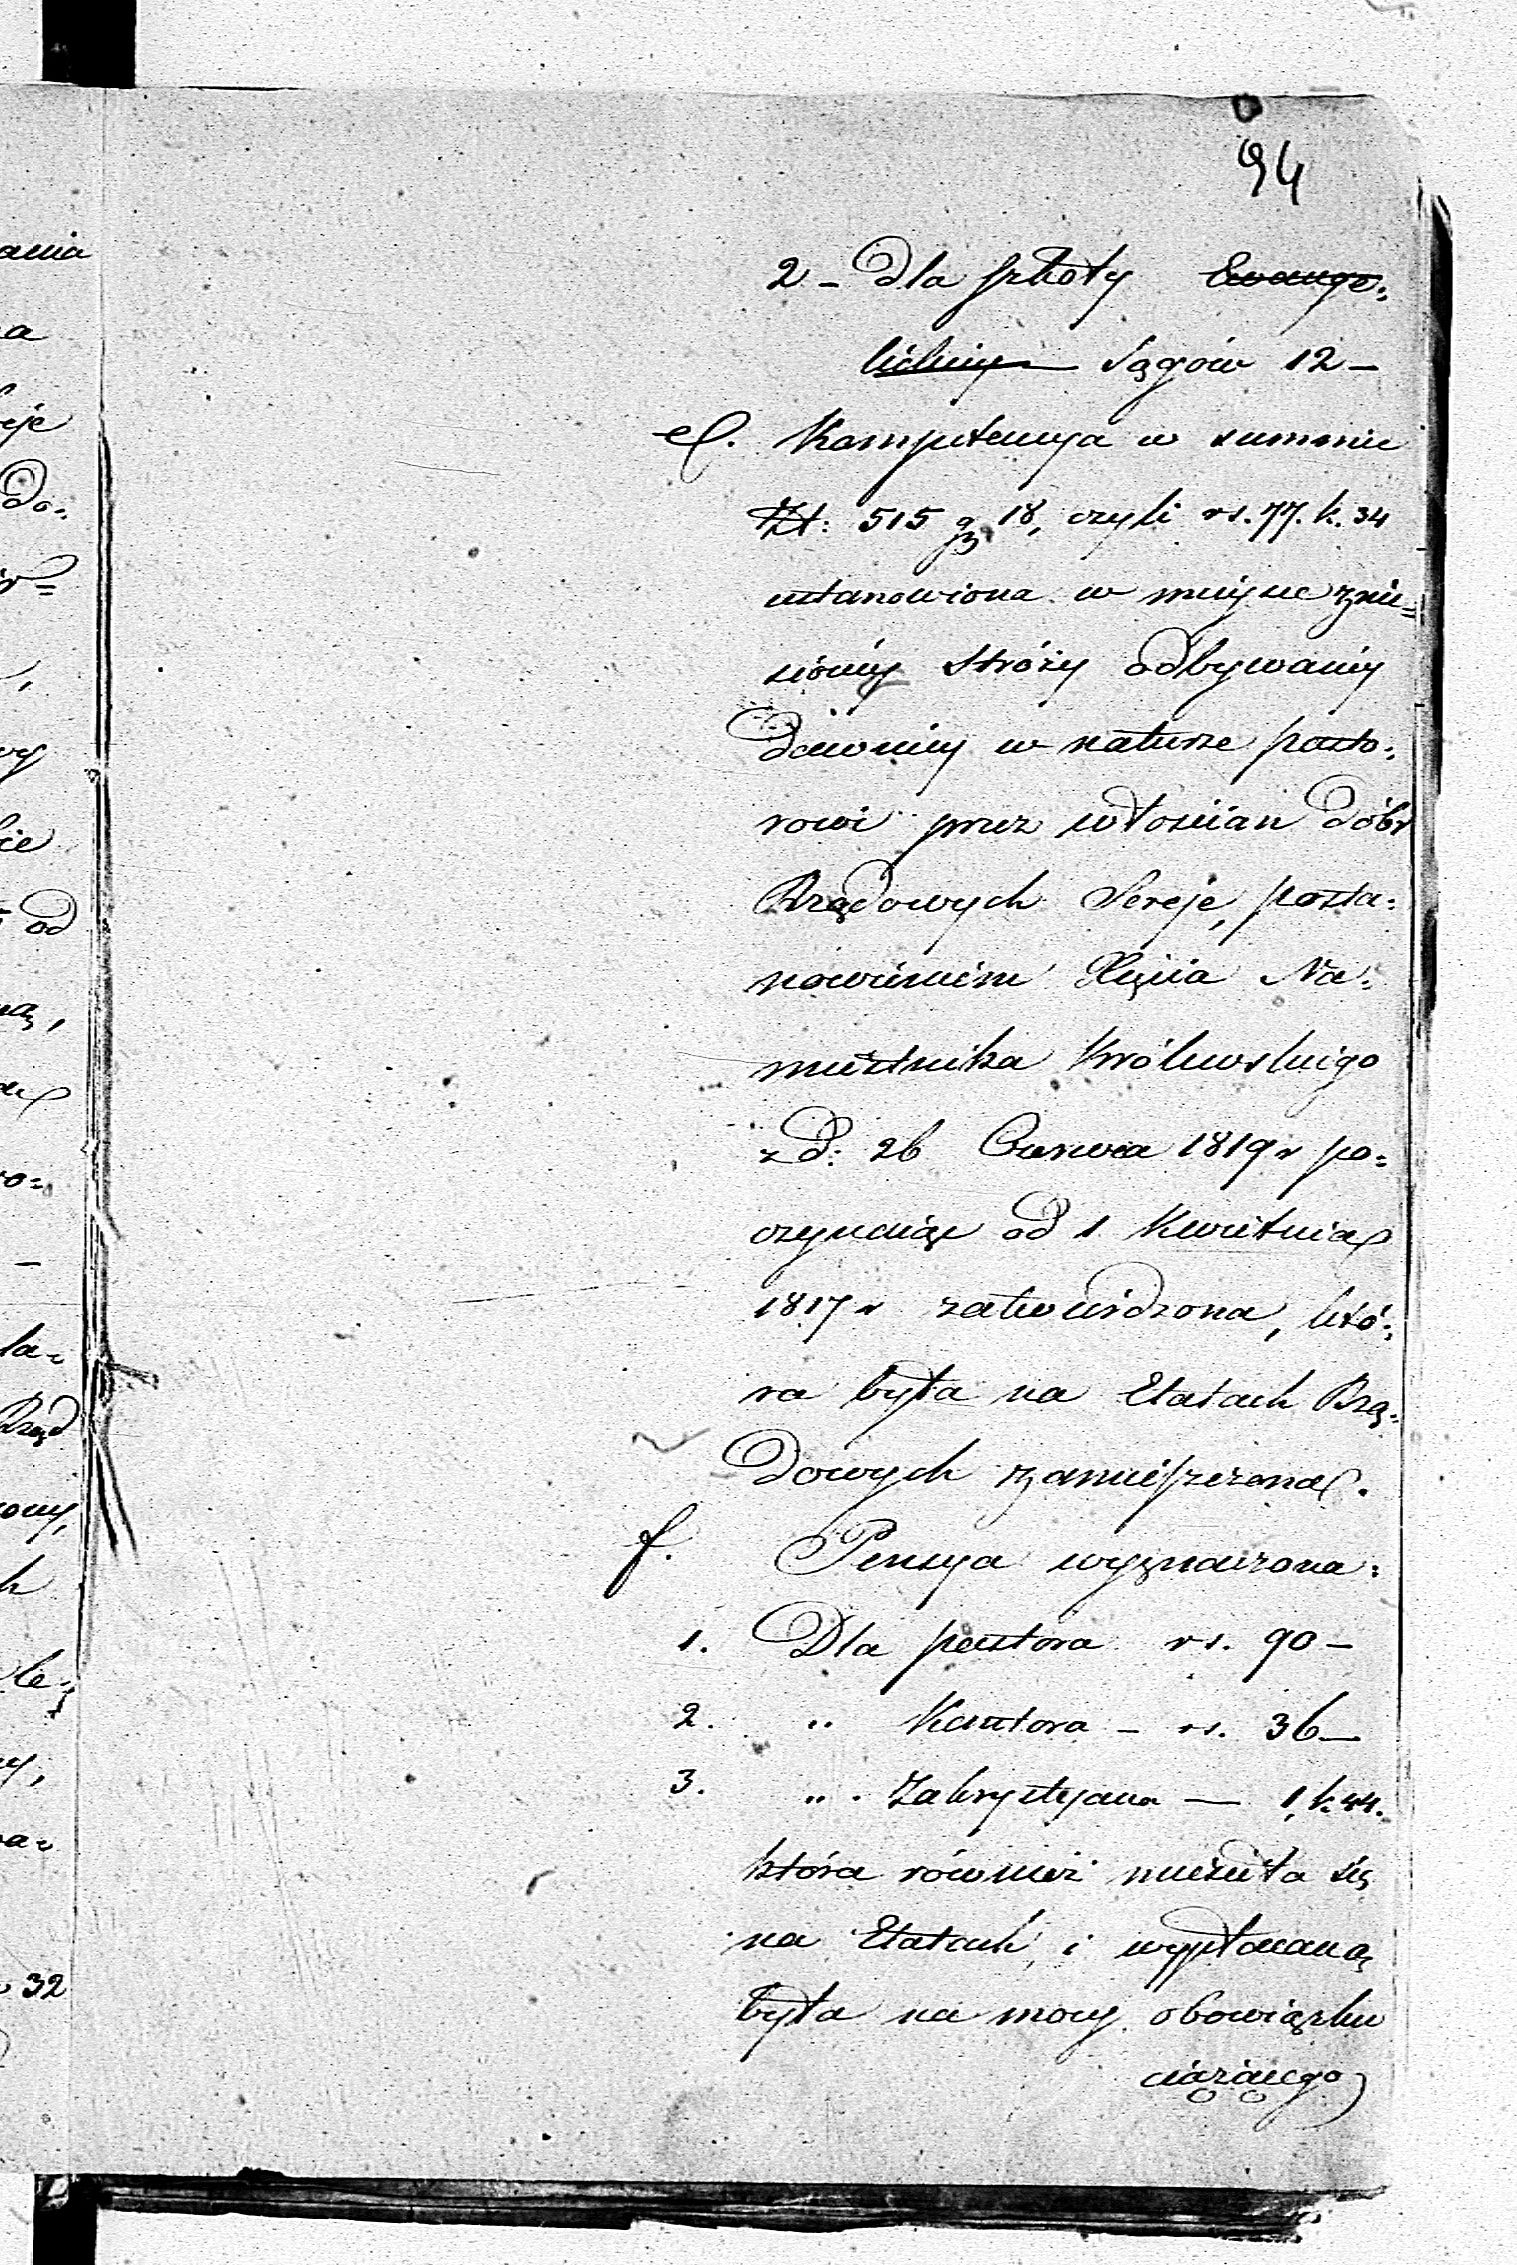 94
2 – Dla szkoły Ewange:
lickiey sągów 12 –
e. Kompetencya w summie
Zł: 515 gr 18, czyli rs. 77. k. 34
ustanowiona w mieysce znie=
sioney stróży odbywaney
dawniey w naturze pasto:
rowi przez włościan dóbr
Rządowych Sereje, posta:
nowieniem Xięcia Na:
miestnika Królewskiego
z d: 26 Czerwca 1819 r po=
czynając od 1 Kwietnia
1817 r zatwierdzona, któ:
ra była na Etatach Rzą:
dowych zamieszczona.
f. Pensya wyznaczona:
1. Dla pastora rs. 90 –
2. " Kantora – rs. 36 –
3. " . Zakrystyana — 1, k. 44.
która również mieściła się
na Etatach, i wypłacaną
była na mocy obowiązku
ciążącego
ania
a
eje
do:
wy
cie
od
ną,
ro=
–
la=
Rząd
h
le=
32